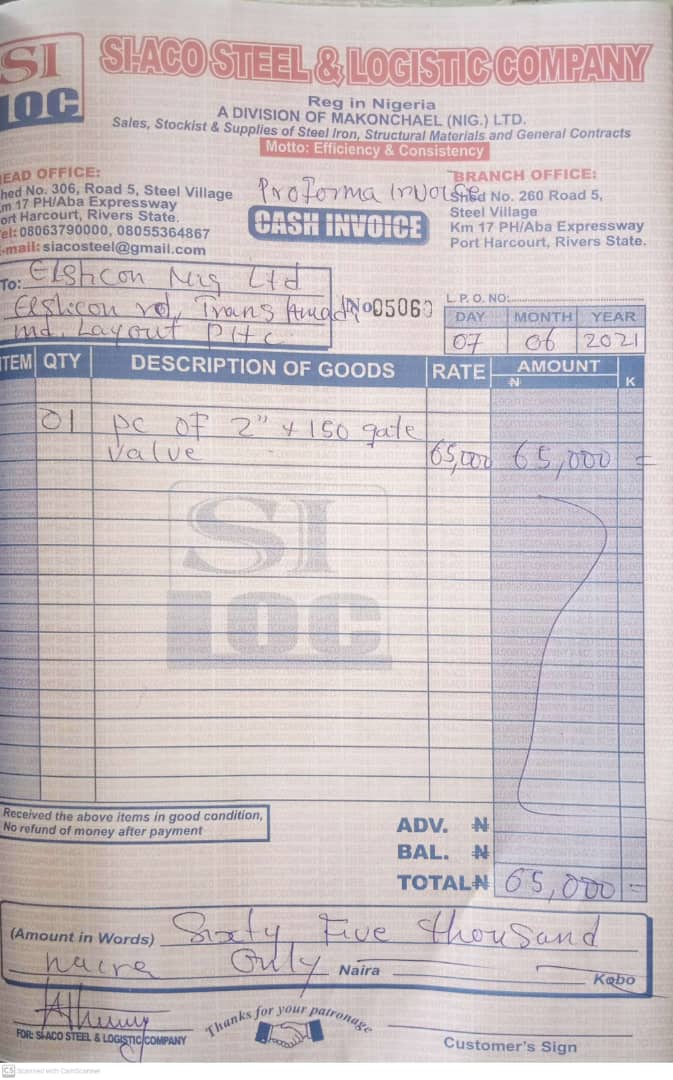 SI
LOC
SI-ACO STEEL & LOGISTIC COMPANY
Reg in Nigeria
A DIVISION OF MAKONCHAEL (NIG.) LTD.
Sales, Stockist & Supplies of Steel Iron, Structural Materials and General Contracts
Motto: Efficiency & Consistency
EAD OFFICE:
hed No. 306, Road 5, Steel Village
m 17 PH/Aba Expressway
ort Harcourt, Rivers State.
el: 08063790000, 08055364867
-mail: siacosteel@gmail.com
Proforma Invoice
CASH INVOICE
BRANCH OFFICE:
Shed No. 260 Road 5,
Steel Village
Km 17 PH/Aba Expressway
Port Harcourt, Rivers State.
To: Elshcon Nig Ltd
Elshcon rd, Trans Amadi
Ind. Layout PHC
No 05060
L.P.O. NO:
DAY MONTH YEAR
07 06 2021
ITEM QTY DESCRIPTION OF GOODS RATE AMOUNT
₦ K
01 pc of 2" x 150 gate
valve 65,000 65,000 =
SI
LOC
Received the above items in good condition,
No refund of money after payment
ADV. ₦
BAL. ₦
TOTAL ₦ 65,000 =
(Amount in Words) Sixty Five thousand
naira Only Naira Kobo
FOR: SI-ACO STEEL & LOGISTIC COMPANY
Thanks for your patronage
Customer's Sign
CS Scanned with CamScanner